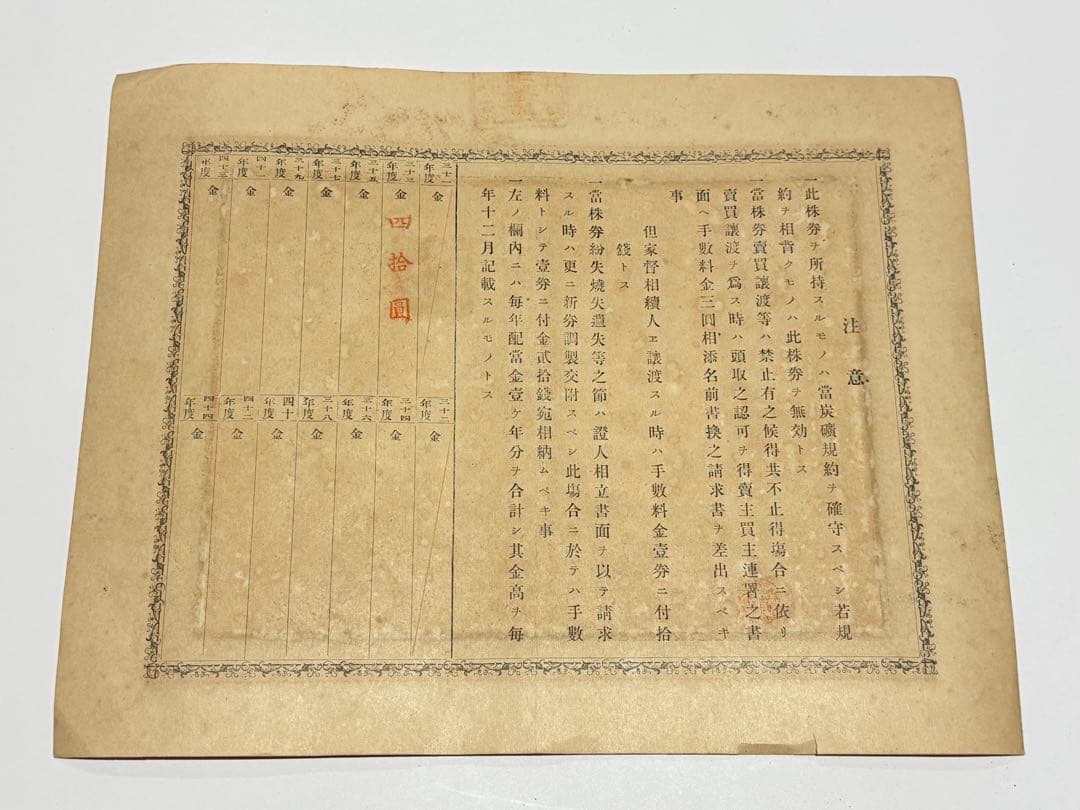 注意
一此株券ヲ所持スルモノハ當炭礦規約ヲ確守スベシ若規
約ヲ相背クモノハ此株券ヲ無効トス
一當株券賣買讓渡等ハ禁止有之候得共不止得塲合ニ依リ
賣買讓渡ヲ爲ス時ハ頭取之認可ヲ得賣主買主連署之書
面ヘ手數料金三圓相添名前書換之請求書ヲ差出スベキ
事
但家督相續人ヱ讓渡スル時ハ手數料金壹券ニ付拾
錢トス
一當株券紛失燒失遺失等之節ハ證人相立書面ヲ以テ請求
スル時ハ更ニ新券調製交附スベシ此塲合ニ於テハ手數
料トシテ壹券ニ付金貳拾錢宛相納ムベキ事
一左ノ欄內ニハ每年配當金壹ケ年分ヲ合計シ其金高ヲ每
年十二月記載スルモノトス
三十一年度 金
三十三年度 金 四拾圓
三十五年度 金
三十七年度 金
三十九年度 金
四十一年度 金
四十三年度 金
三十二年度 金
三十四年度 金
三十六年度 金
三十八年度 金
四十年度 金
四十二年度 金
四十四年度 金